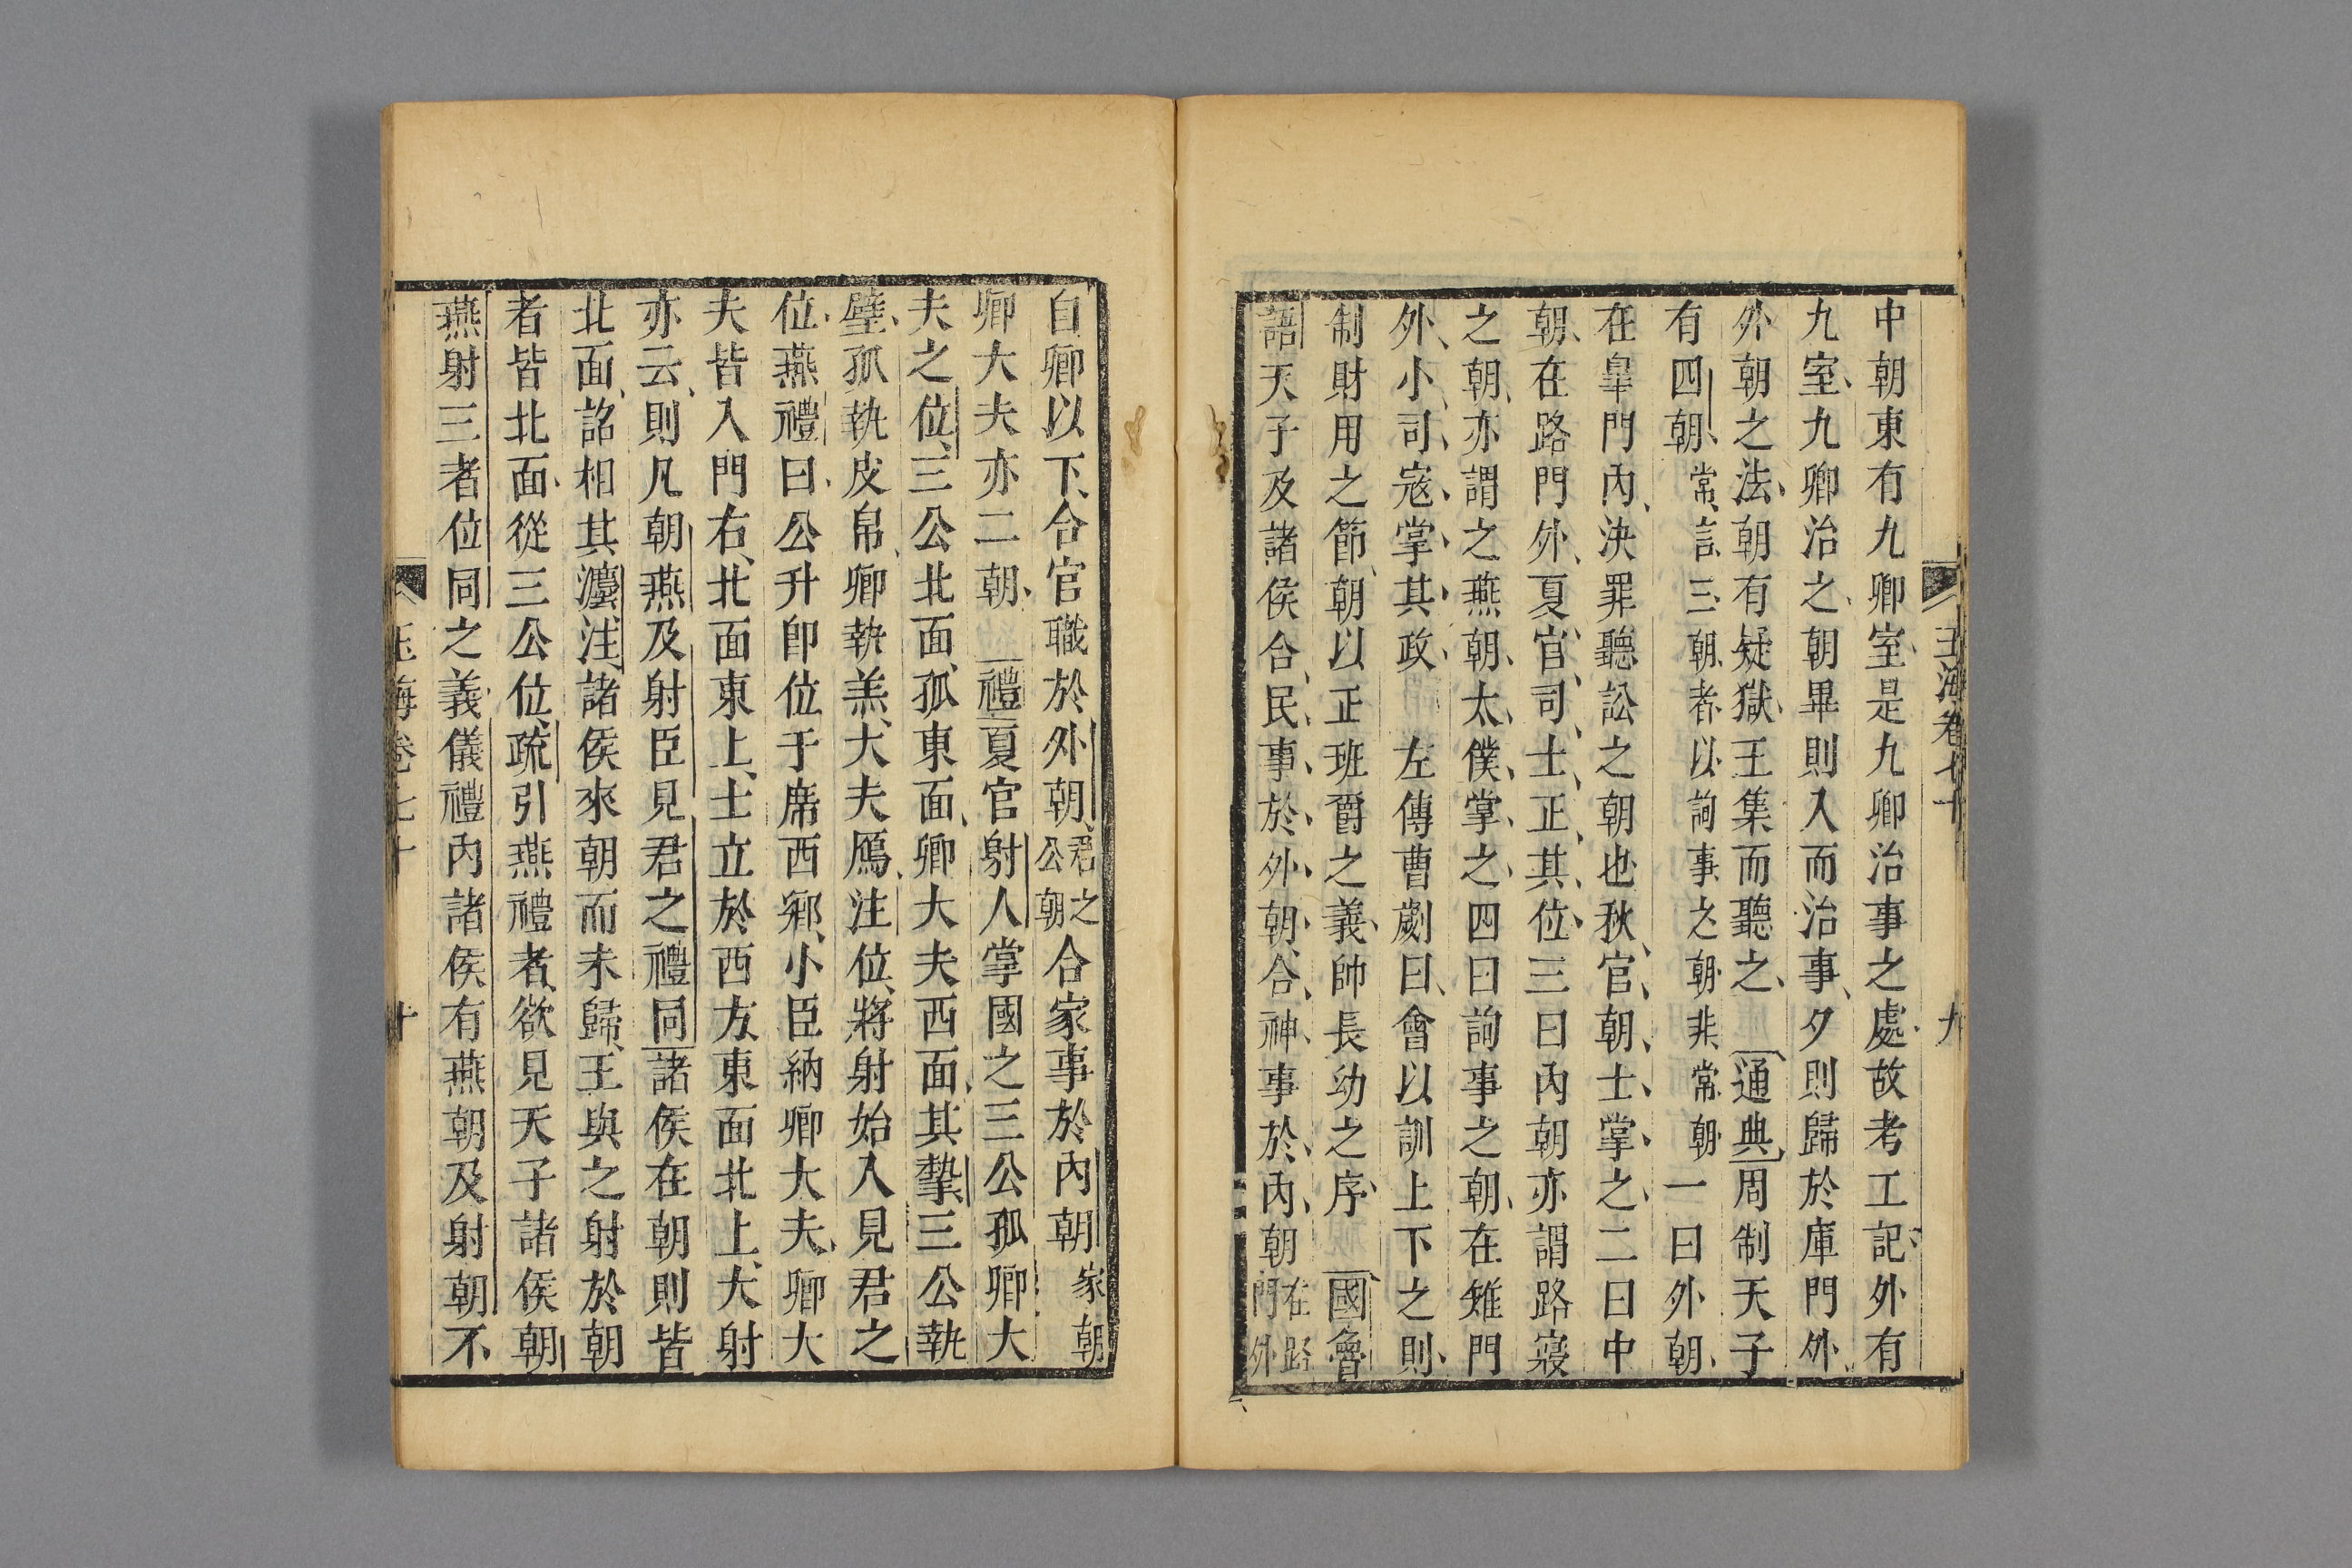 玉海卷七十
九
中朝東有九卿室是九卿治事之處故考工記外有
九室九卿治之朝畢則入而治事夕則歸於庫門外
外朝之法朝有疑獄王集而聽之通典周制天子
有四朝常言三朝者以詢事之朝非常朝一曰外朝
在臯門內決罪聽訟之朝也秋官朝士掌之二曰中
朝在路門外夏官司士正其位三曰內朝亦謂路寢
之朝亦謂之燕朝太僕掌之四曰詢事之朝在雉門
外小司寇掌其政左傳曹劌曰會以訓上下之則
制財用之節朝以正班爵之義帥長幼之序國魯
語天子及諸侯合民事於外朝合神事於內朝在路門外
自卿以下合官職於外朝君之公朝合家事於內朝家朝
卿大夫亦二朝禮夏官射人掌國之三公孤卿大
夫之位三公北面孤東面卿大夫西面其摯三公執
璧孤執皮帛卿執羔大夫鴈注位將射始入見君之
位燕禮曰公升卽位于席西鄉小臣納卿大夫卿大
夫皆入門右北面東上士立於西方東面北上大射
亦云則凡朝燕及射臣見君之禮同諸侯在朝則皆
北面詔相其灋注諸侯來朝而未歸王與之射於朝
者皆北面從三公位疏引燕禮者欲見天子諸侯朝
燕射三者位同之義儀禮內諸侯有燕朝及射朝不
玉海卷七十
十